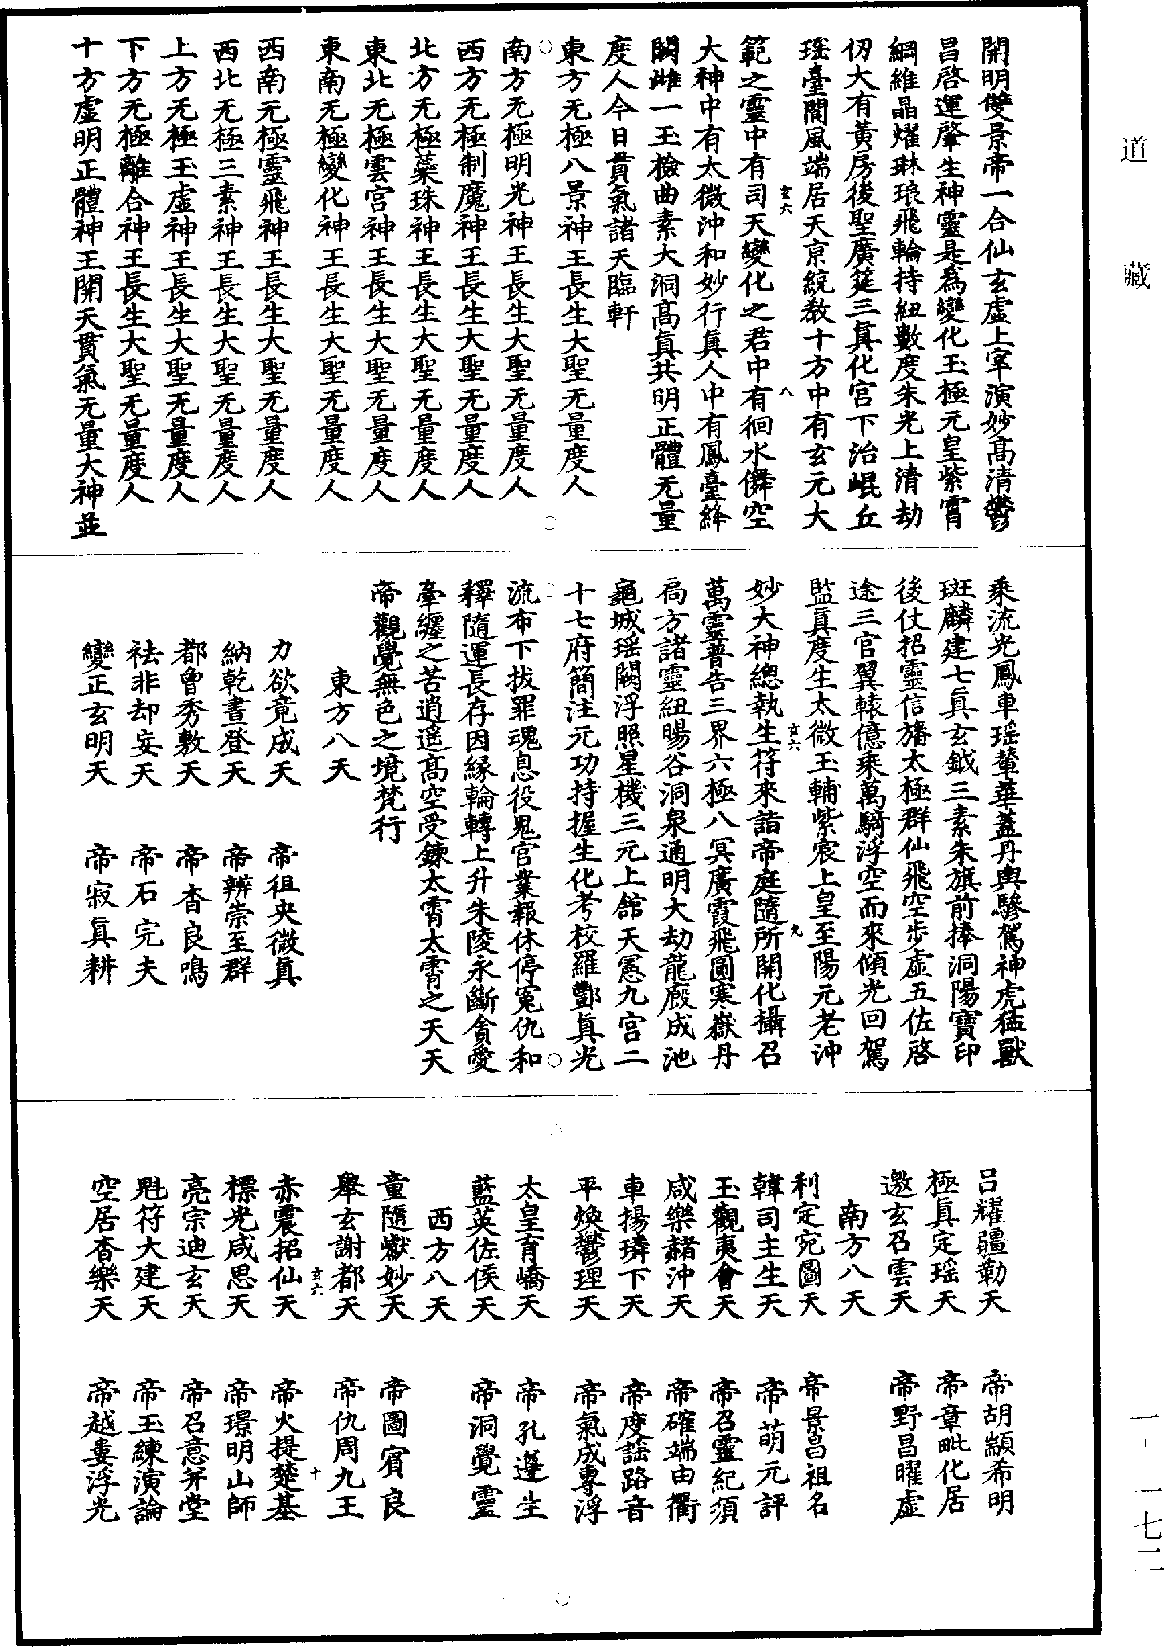 開明雙景帝一合仙玄虛上宰演妙髙清鬱
昌啓運肇生神靈是爲變化玉極元皇紫霄
綱維晶燿琳琅飛輪持紐數度朱光上清劫
仞大有黃房後聖廣筵三真化官下治岷丘
瑶臺閬風端居天京統教十方中有玄元大
範之靈中有司天變化之君中有徊水儛空
大神中有太微沖和妙行真人中有鳳臺絳
闕雌一玉檢曲素大洞髙真共明正體无量
度人今日貫氣諸天臨軒
東方无極八景神王長生大聖无量度人
南方无極明光神王長生大聖无量度人
西方无極制魔神王長生大聖无量度人
北方无極蘂珠神王長生大聖无量度人
東北无極雲宮神王長生大聖无量度人
東南无極變化神王長生大聖无量度人
西南无極靈飛神王長生大聖无量度人
西北无極三素神王長生大聖无量度人
上方无極玉虛神王長生大聖无量度人
下方无極離合神王長生大聖无量度人
十方虛明正體神王開天貫氣无量大神並
玄六
八
乘流光鳳車瑶輦華蓋丹輿驂駕神虎猛獸
斑麟建七真玄鉞三素朱旗前捧洞陽寶印
後仗招靈信旛太極群仙飛空步虛五佐啓
途三官翼轅億乘萬騎浮空而來傾光回駕
監真度生太微玉輔紫宸上皇至陽元老沖
妙大神總執生符來詣帝庭隨所開化攝召
萬靈普告三界六極八冥廣霞飛圓寒嶽丹
局方諸靈紐暘谷洞泉通明大劫龍廄成池
龜城瑶闕浮照星機三元上舘天憲九宮二
十七府簡注元功持握生化考校羅酆真光
流布下拔罪魂息役鬼官業報休停寃仇和
釋隨運長存因縁輪轉上升朱陵永斷貪愛
牽纏之苦逍遥髙空受鍊太霄太霄之天天
帝觀覺無色之境梵行
東方八天
力欲竟成天　帝祖央微真
納乾晝登天　帝辨崇至群
都曾秀敷天　帝杳良鳴
祛非却妄天　帝石完夫
變正玄明天　帝寂真耕
玄六
九
呂耀疆勒天　帝胡顓希明
極真定瑶天　帝章毗化居
邀玄召雲天　帝野昌曜虛
南方八天
利定宛圖天　帝景昌祖名
韓司主生天　帝萌元評
玉觀夷會天　帝召靈紀須
咸樂赭沖天　帝確端由衢
車揚璘下天　帝度謡路音
平煥鬱理天　帝氣成專浮
太皇育嶠天　帝孔蓬生
藍英佐俟天　帝洞覺靈
西方八天
童隨嶽妙天　帝圖賓良
舉玄謝都天　帝仇周九王
赤震招仙天　帝火提楚基
標光咸思天　帝璟明山師
亮宗迪玄天　帝召意笄堂
魁符大建天　帝玉練演論
空居杳樂天　帝越婁浮光
玄六
十
道藏
一-一七二